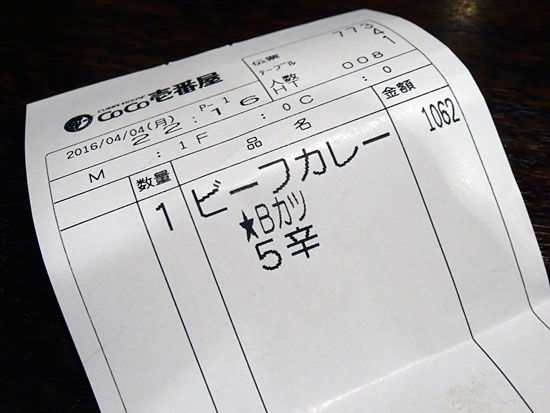 CURRY HOUSE
CoCo壱番屋
2016/04/04(月) P-1
22:16
伝票 7734
テーブル 1
人数 008
HT :0
M :1F :0C
数量 品名 金額
1 ビーフカレー 1062
★Bカツ
5辛